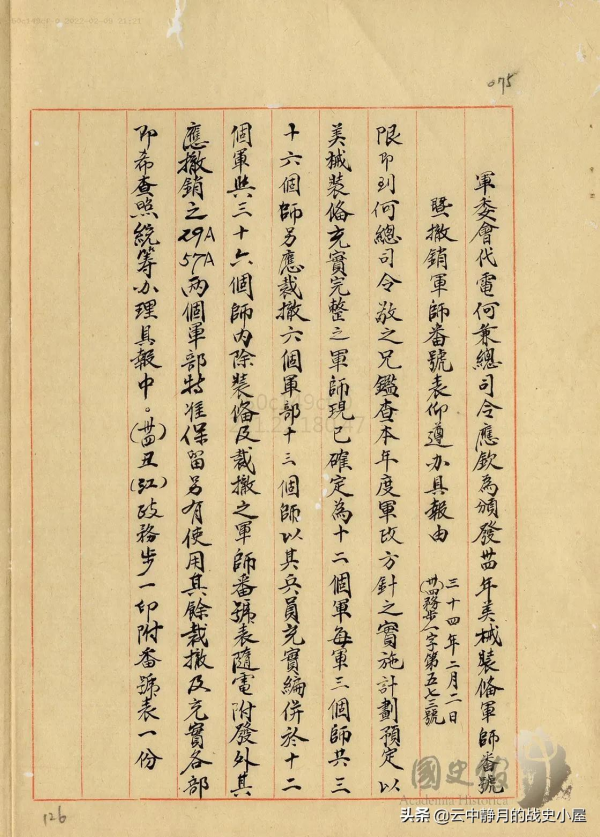 075
軍委會代電何兼總司令應欽為頒發卅四年美械裝備軍師番號
暨撤銷軍師番號表仰遵办具報由
三十四年二月二日
卅四務步一字第五七三號
限即到何總司令敬之兄鑑查本年度軍政方針之實施計劃預定以
美械裝備充實完整之軍師現已確定為十二個軍每軍三個師共三
十六個師另應裁撤六個軍部十三個師以其兵員充實編併於十二
個軍與三十六個師內除裝備及裁撤之軍師番號表隨電附發外其
應撤銷之29A 57A兩個軍部特准保留另有使用其餘裁撤及充實各部
即希查照統筹办理具報中。(卅四)丑(江)政務步一印附番號表一份
126
國史館
Academia Historica
头条 @云中静月的战史小屋